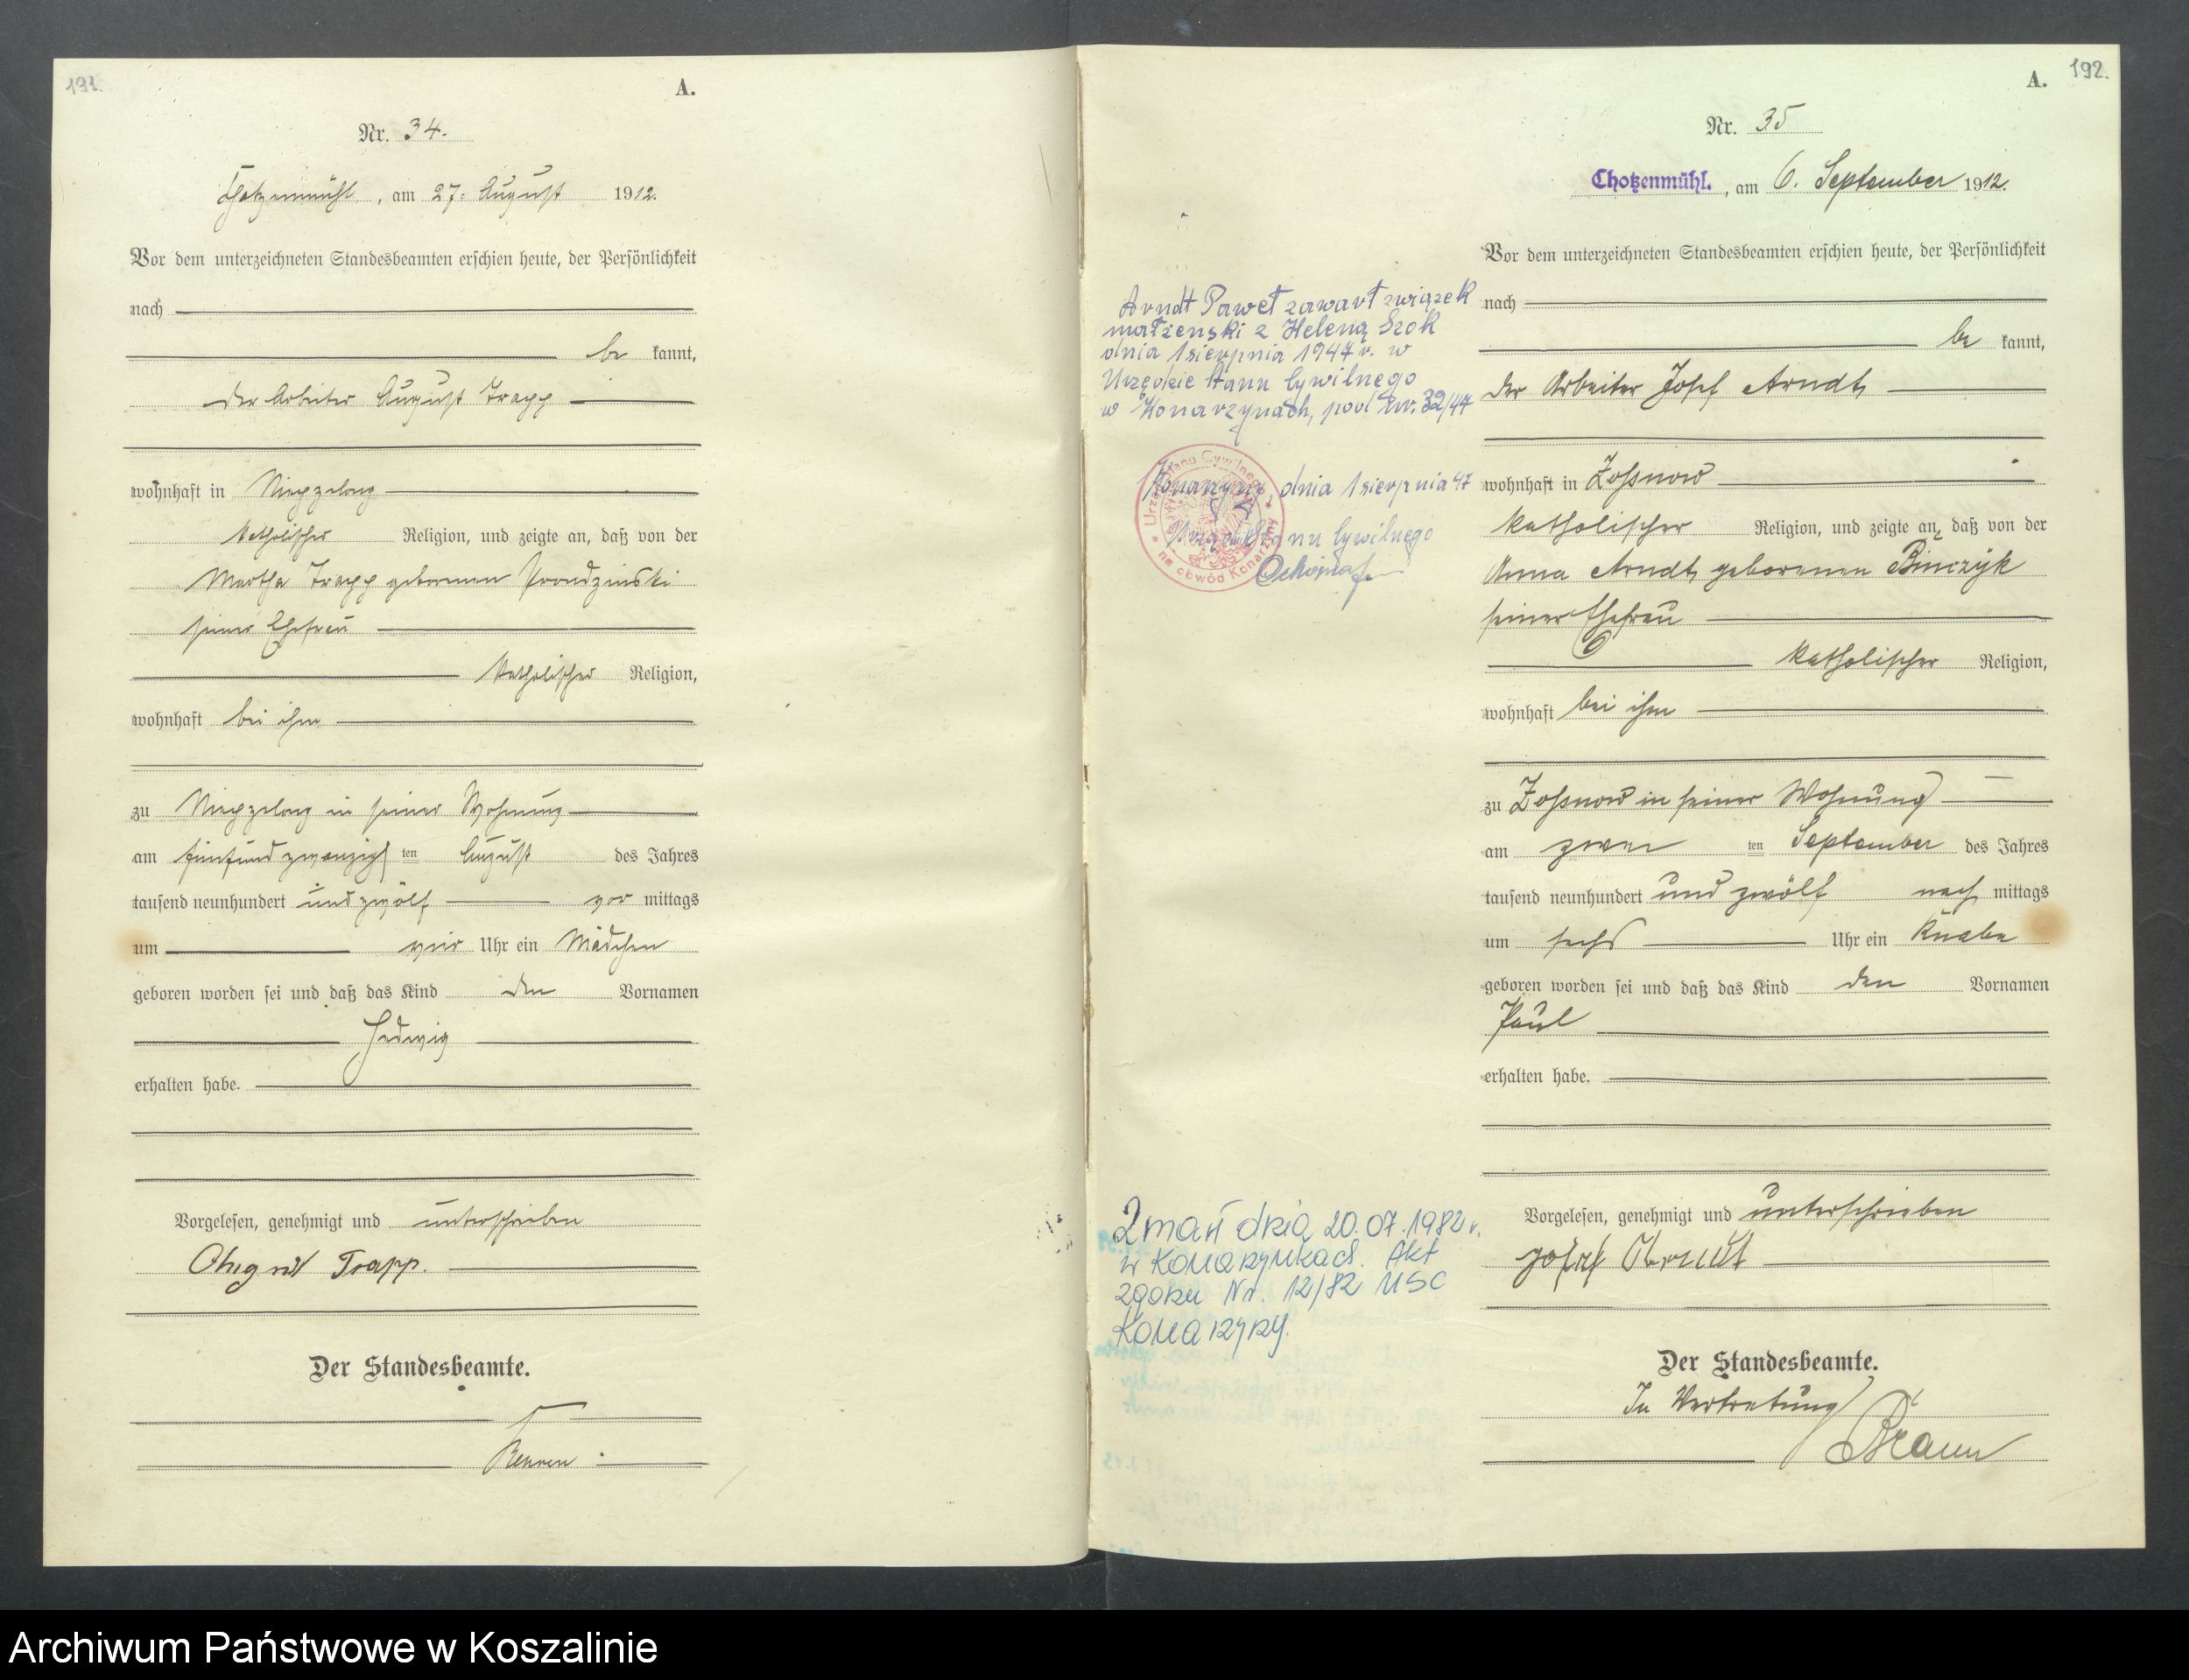 191.
A.
Nr. 34.
Chotzenmühl, am 27. August 1912.
Vor dem unterzeichneten Standesbeamten erschien heute, der Persönlichkeit
nach
be kannt,
der Arbeiter August Trapp
wohnhaft in
katholischer Religion, und zeigte an, daß von der
Martha Trapp geborenen Prondzinski
seiner Ehefrau
katholischer Religion,
wohnhaft bei ihm
zu in seiner Wohnung
am fünfundzwanzigsten August des Jahres
tausend neunhundert und zwölf vor mittags
um vier Uhr ein Mädchen
geboren worden sei und daß das Kind den Vornamen
Hedwig
erhalten habe.
Vorgelesen, genehmigt und unterschrieben
August Trapp.
Der Standesbeamte.
192.
A.
Nr. 35
Chotzenmühl., am 6. September 1912.
Vor dem unterzeichneten Standesbeamten erschien heute, der Persönlichkeit
nach
be kannt,
der Arbeiter Josef Arndt
wohnhaft in Zossnow
katholischer Religion, und zeigte an, daß von der
Anna Arndt geborenen Binczyk
seiner Ehefrau
katholischer Religion,
wohnhaft bei ihm
zu Zossnow in seiner Wohnung
am zwei ten September des Jahres
tausend neunhundert und zwölf nach mittags
um sechs Uhr ein Knabe
geboren worden sei und daß das Kind den Vornamen
Paul
erhalten habe.
Vorgelesen, genehmigt und unterschrieben
Josef Arndt
Der Standesbeamte.
In Vertretung
Arndt Paweł zawarł związek
małżenski z Heleną Szok
dnia 1 sierpnia 1947 r. w
Urzędzie Stanu Cywilnego
w Konarzynach, pod nr. 32/47
Konarzyny, dnia 1 sierpnia 47
Stanu Cywilnego
Urząd Stanu Cywilnego
na obwód Konarzyny
Zmarł dnia 20.07.1982 r.
w Konarzynkach. Akt
zgonu Nr. 12/82 USC
Konarzyny.
Archiwum Państwowe w Koszalinie